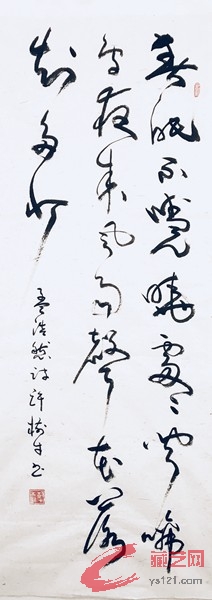 春眠不覺曉處〻聞啼
鳥夜来風雨聲花落
知多少
孟浩然诗許樹
藏艺网
ys121.com